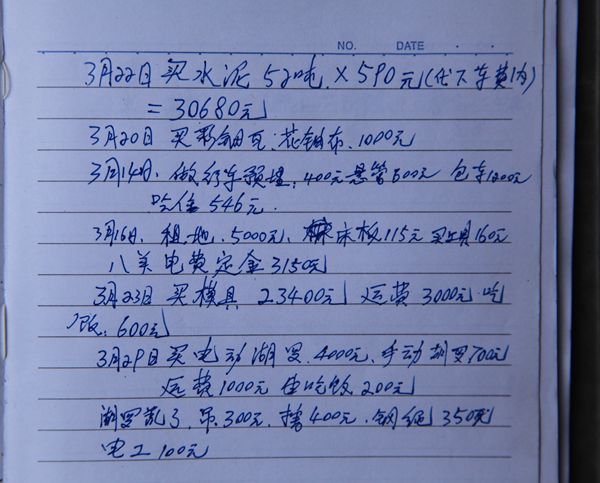 NO. DATE
3月22日 买水泥 52吨 × 590元(代下车费内)
= 30680元
3月20日 买彩钢瓦、花铺布、1000元
3月14日、做行车预埋、400元 悬管500元 包车1200元
吃住 546元.
3月16日、租地、5000元、床板115元 买工具160元
八关电费定金3150元
3月23日 买模具 23400元 运费 3000元 吃
饭、600元
3月29日 买电动葫罗、4000元、手动葫罗700元
运费1000元 住吃饭、200元
葫罗乱了、吊、300元、搭400元、钢绳350元
电工100元